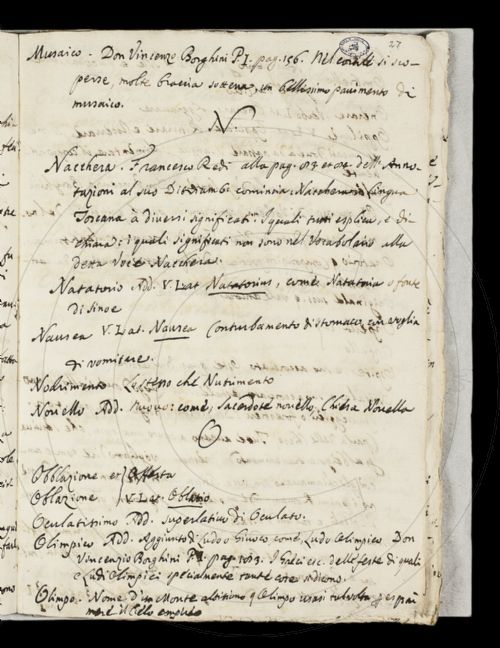 27
Musaico - Don Vincenzo Borghini P. I. pag. 156. Nel si sco-
perse, molte braccia sotterra, un bellissimo pavimento di
musaico.
N
Nacchera. Francesco Redi alla pag. et dell' Anno-
tazioni al suo Ditirambo comincia. Nacchera in lingua
Toscana à diversi significati. I quali tutti esplica, e di-
chiara: i quali significati non sono nel Vocabolario alla
detta voce Nacchera.
Natatorio Add. V. Lat. Natatorius, come Natatoria o fonte
di Siloe
Nausea V. Lat. Nausea Conturbamento di stomaco, con voglia
di vomitare.
Nodrimento Lo stesso che Nutrimento
Novello Add. Nuovo: come, Sacerdote novello, Chiesa Novella
O
Obblazione et Offerta
Oblazione V. Lat. Oblatio
Oculatissimo Add. Superlativo di Oculato.
Olimpico Add. Aggiunto di Ludo o Giuoco come Ludo Olimpico Don
Vincenzio Borghini P. pag. I Greci etc. delle feste di quali
e Ludi Olimpici specialmente tante cose si dicono.
Olimpo. Nome d'un Monte altissimo e Olimpo usasi talvolta p
il Cielo empireo